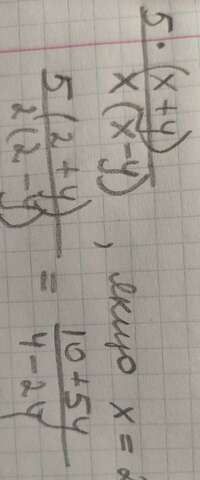 5·(x+y)/x(x-y), якщо x=2
5(2+y)/2(2-y) = 10+5y/4-2y